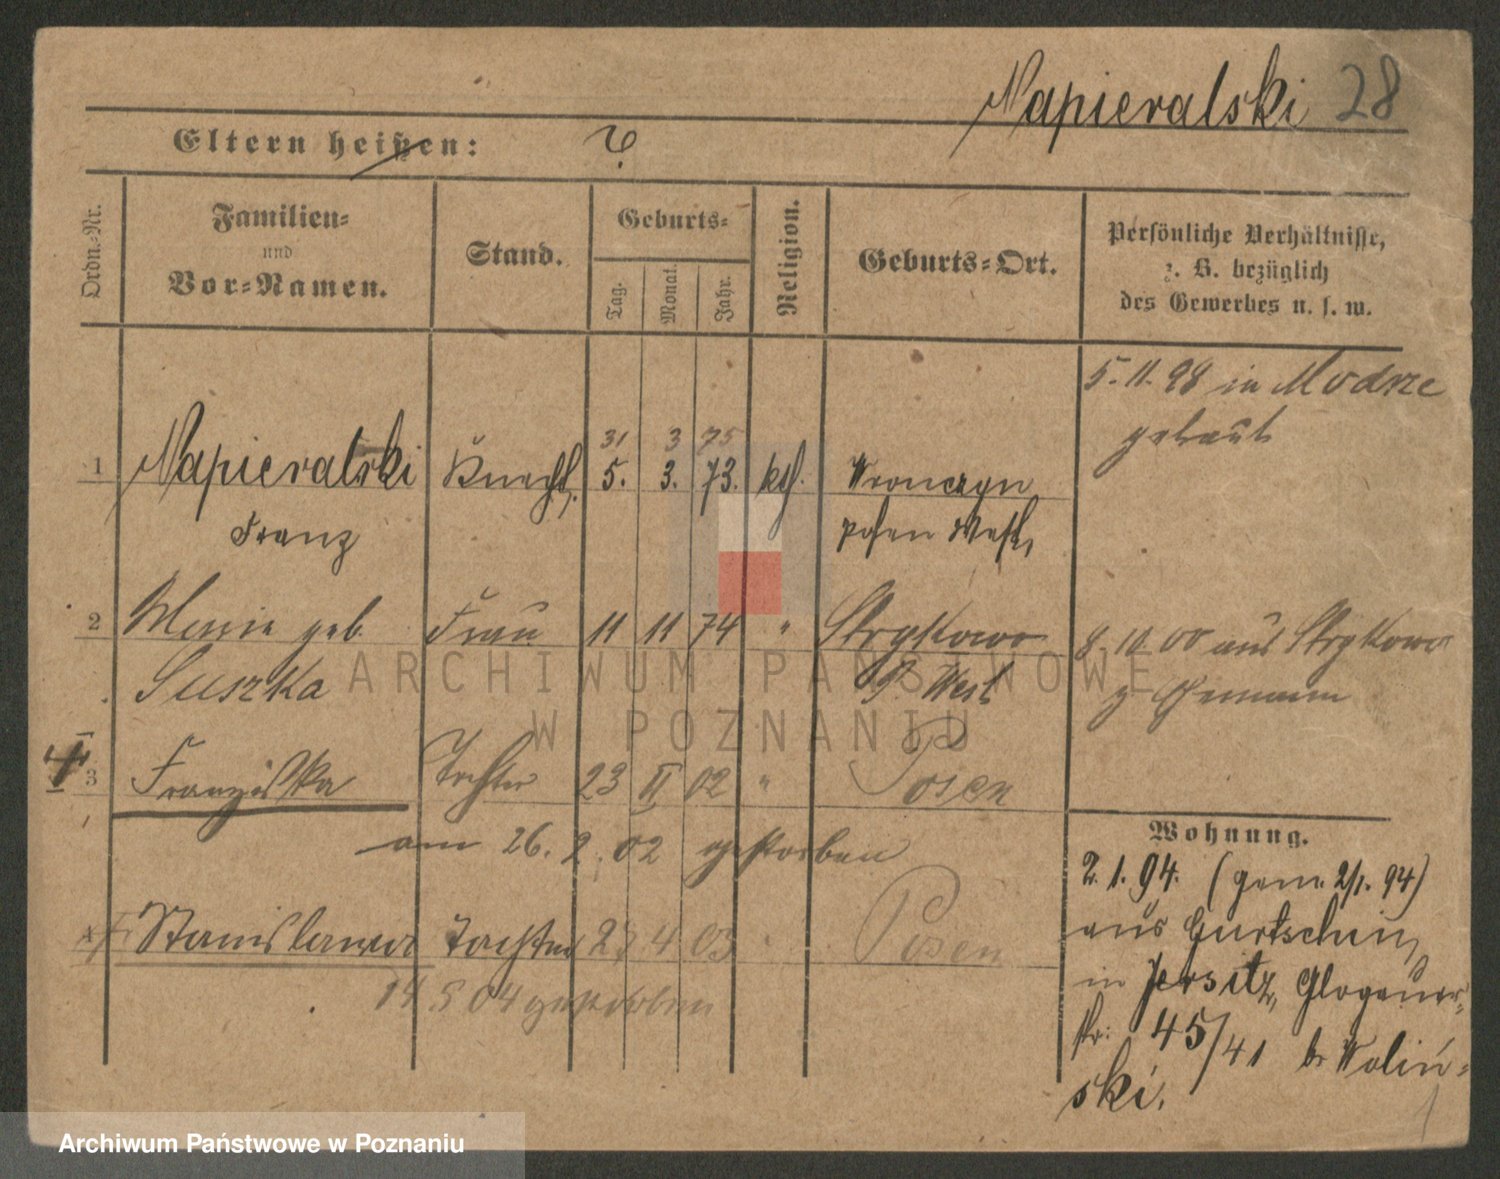 Napieralski 28
Eltern heißen: ?
Ordn.-Nr.
Familien-
und
Vor-Namen.
Stand.
Geburts-
Tag.
Monat.
Jahr.
Religion.
Geburts-Ort.
Persönliche Verhältnisse,
z. B. bezüglich
des Gewerbes u. s. w.
5. 11. 98 in Modrze
getraut
31 3 75
1 Napieralski Knecht. 5. 3. 73. kth. Wronczyn
Franz Posen West,
2 Marie geb. Frau 11 11 74 " Strykowo 8. 10. 00 aus Strykowo
Suszka P. West z. Ehemann
3 Franziska Tochter 23 II 02 " Posen
am 26. 2. 02 gestorben
4 Stanislawa Tochter 27 4 03 Posen
14. 5 04 gestorben
Wohnung.
2. 1. 94. (gem. 2/1. 94)
aus Gurtschin,
in Jersitz, Glogauer-
str: 45/41 b. Wolin-
ski.
ARCHIWUM PAŃSTWOWE
W POZNANIU
Archiwum Państwowe w Poznaniu